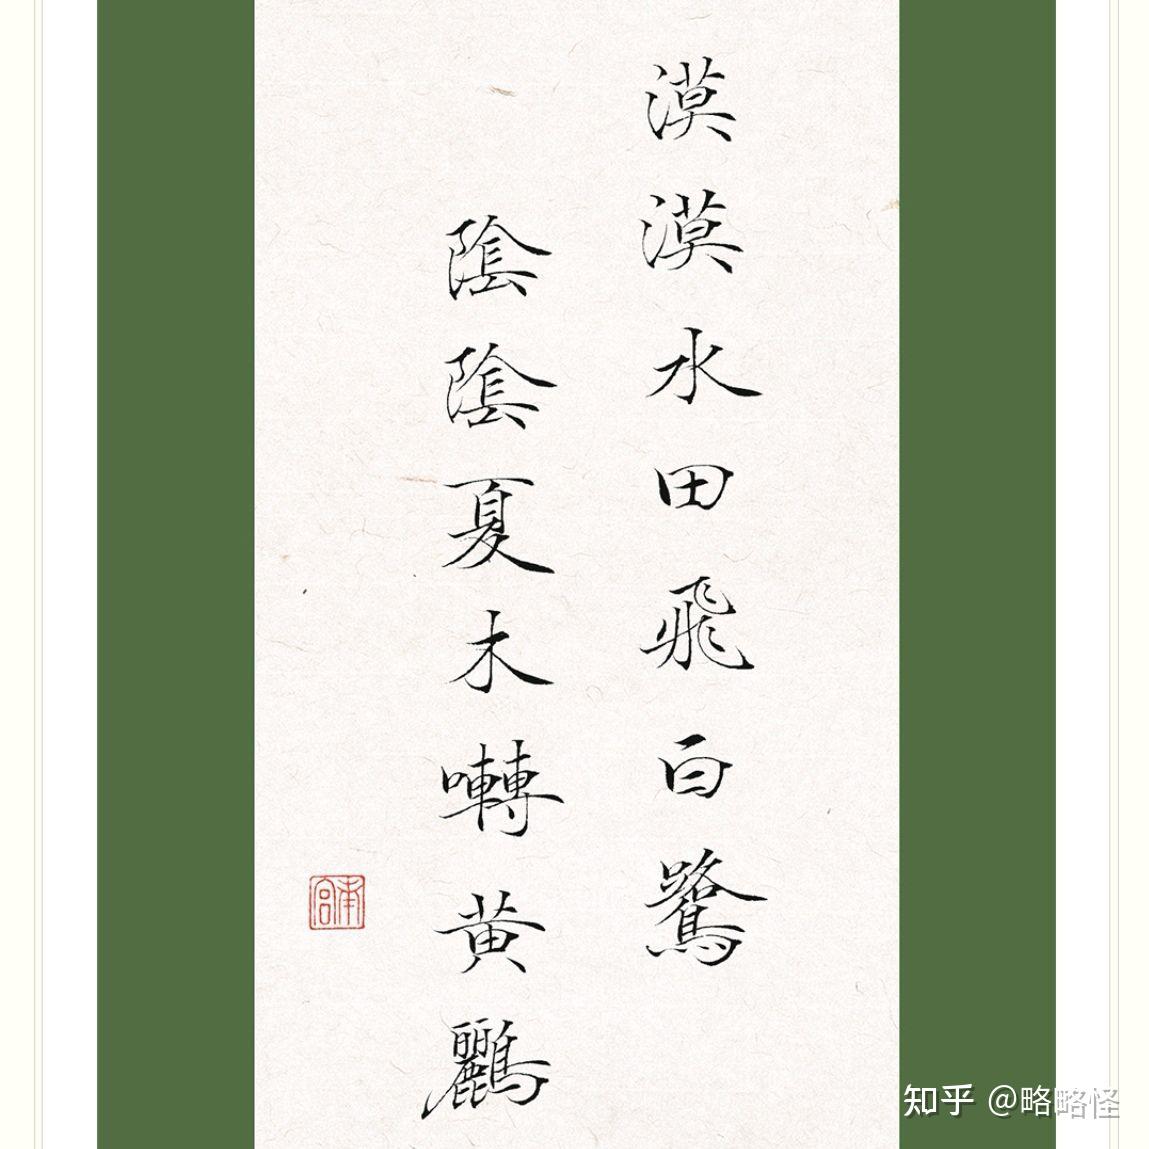 漠漠水田飛白鷺
陰陰夏木囀黄鸝
南宫
知乎 @略略怪